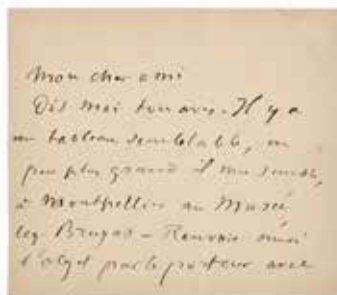 Mon cher ami
Dis moi ton avis. Il y a
un tableau semblable, un
peu plus grand il me semble,
à Montpellier au Musée
leg Bruyas - Renvoie moi
l'objet par le porteur avec